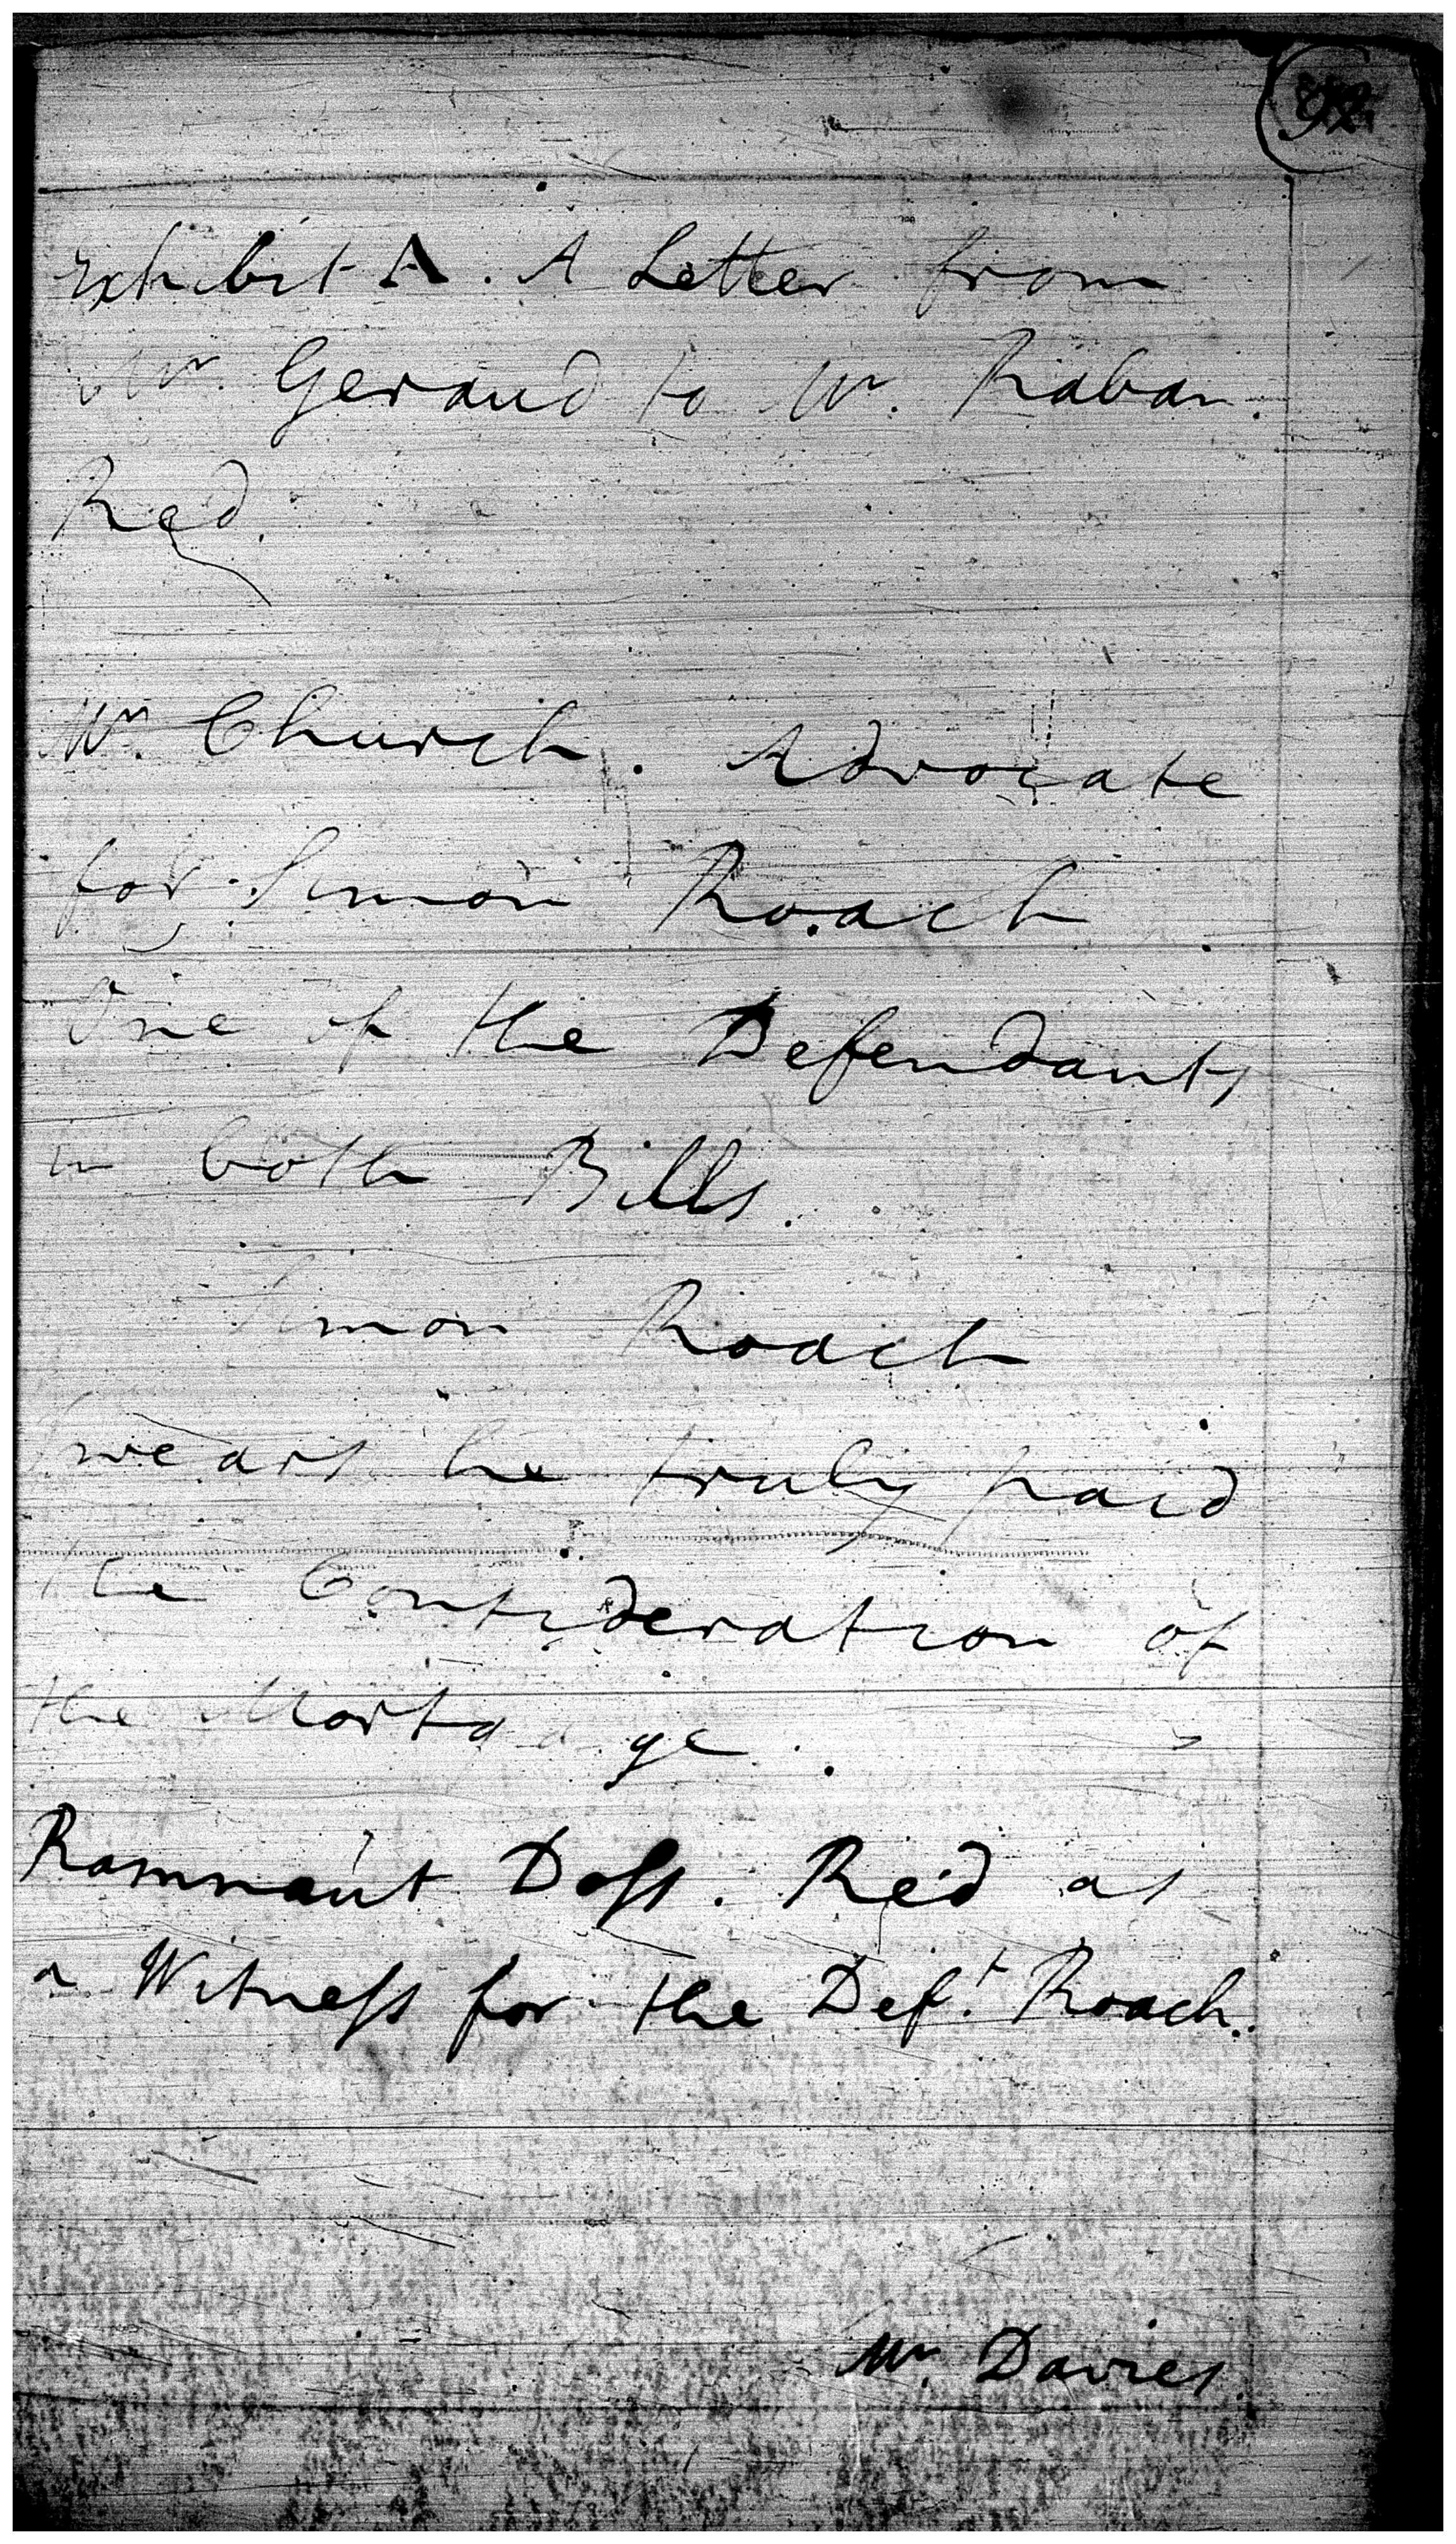 Exhibit A. A Letter from
Mr. Geraud to Mr. Raban.
Red.
Mr. Church. Advocate
for Simon Roach
One of the Defendants
in both Bills.
Simon Roach
Swears he truly paid
the Consideration of
the Mortgage.
Ramnaut Doss. Red as
a Witness for the Deft. Roach.
Mr. Davies